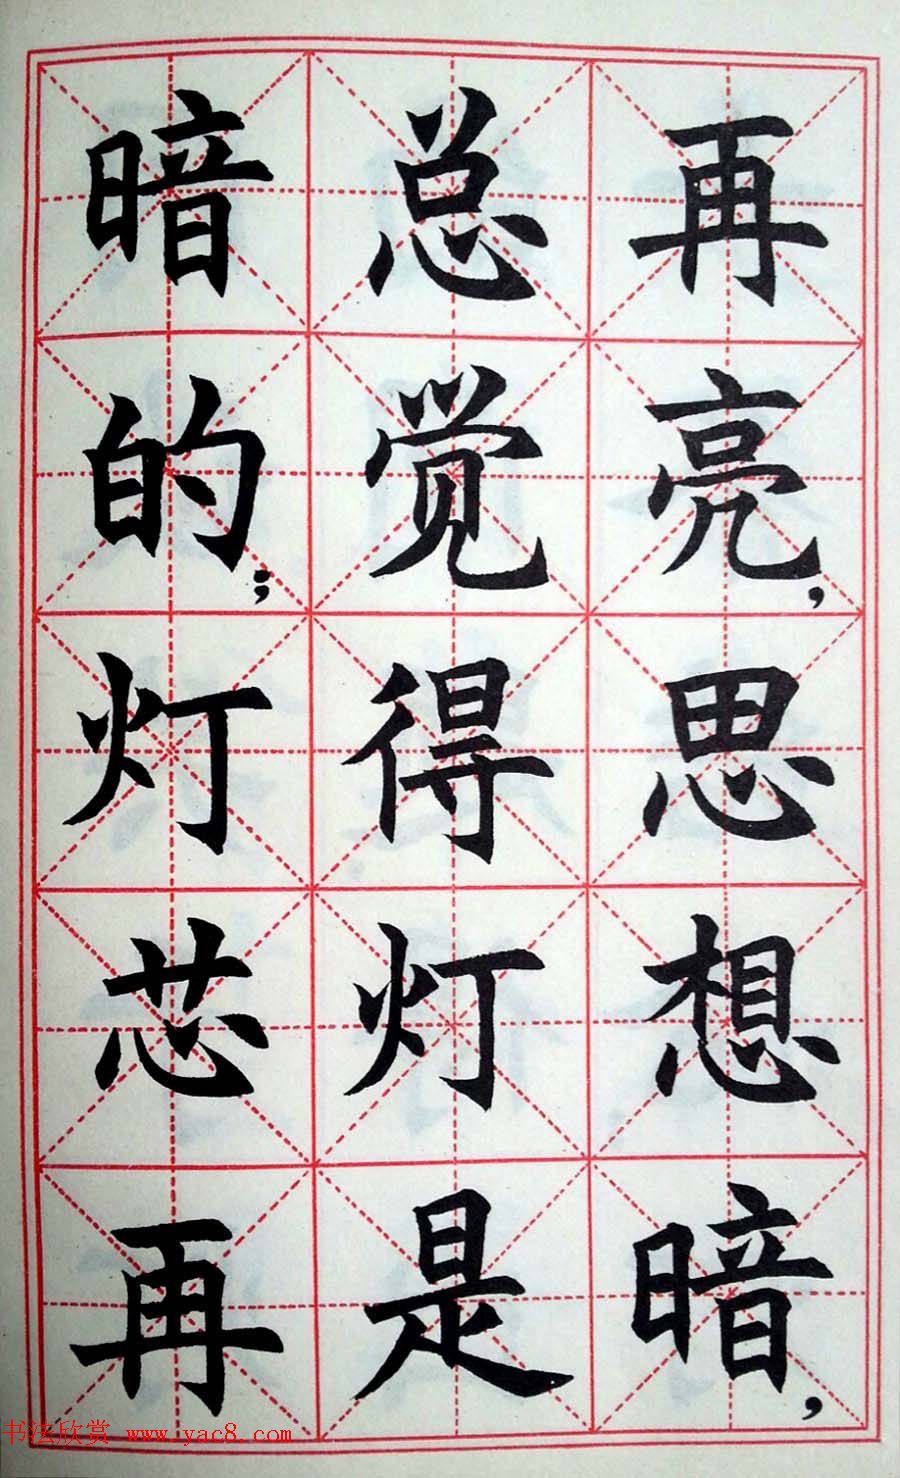 再亮，思想暗，
总觉得灯是
暗的；灯芯再
书法欣赏 www.yac8.com